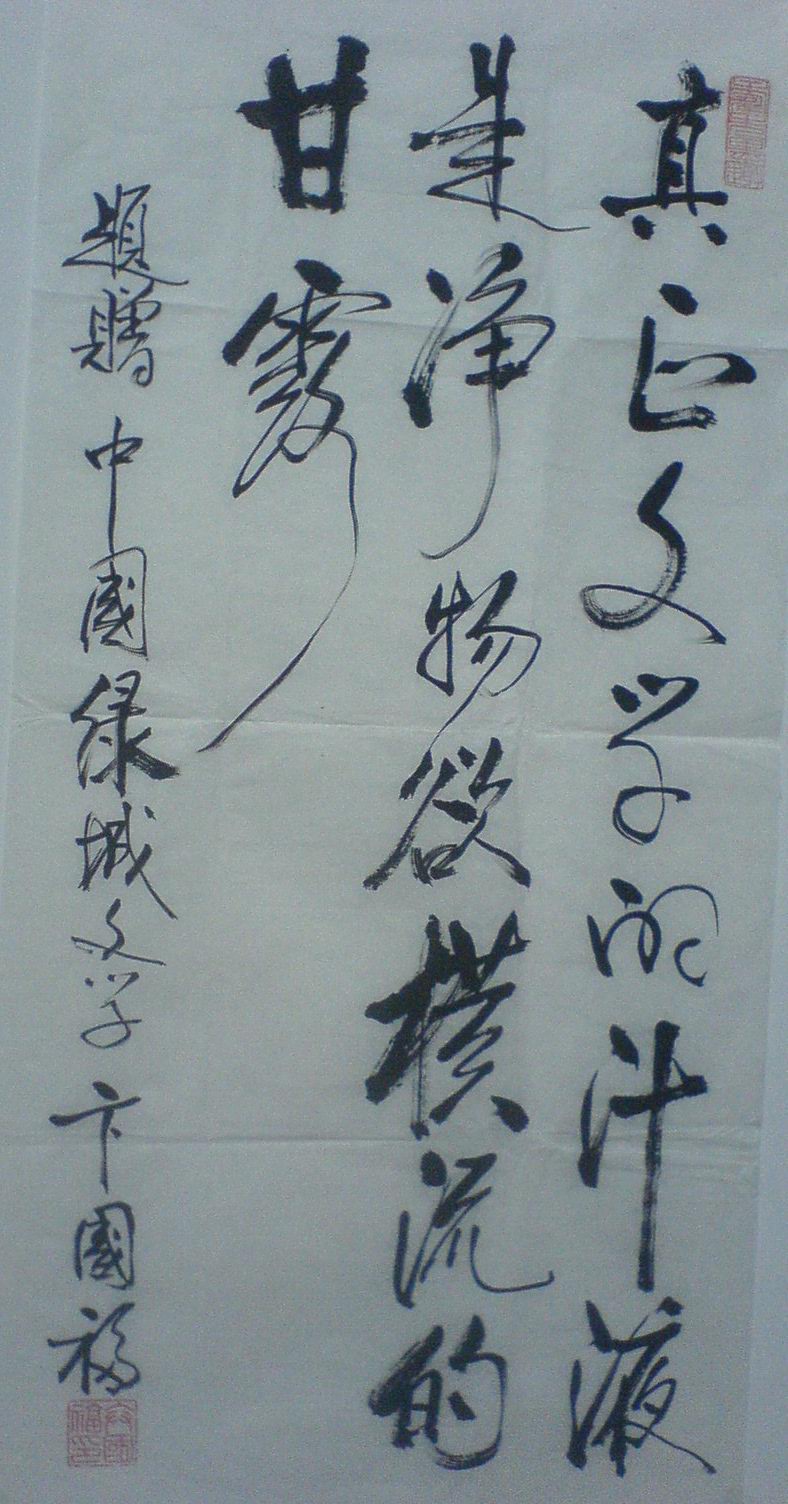 真正文学的汁液
是净物欲横流的
甘露
题赠 中國绿城文学 卞國福